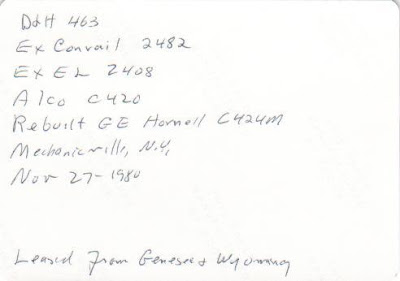 D&H 463
Ex Conrail 2482
Ex EL 2408
Alco C420
Rebuilt GE Hornell C424M
Mechanicville, N.Y,
Nov 27-1980
Leased From Genesee & Wyoming